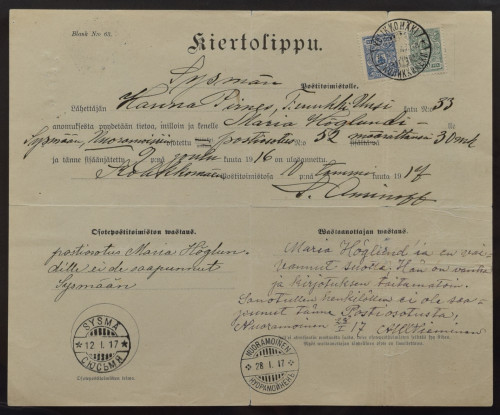 Blank N:o 63.
Kiertolippu.
Sysmän
Postitoimistolle.
Lähettäjän Hanna Pirnes, Uusi katu N:o 33
anomuksesta pyydetään tietoa, milloin ja kenelle Maria Höglund
Sysmään, Nuoramoisiin osoitettu postiosotus N:o 52 määrältään 30 mk
ja tänne sisäänjätetty 9 p:nä joulu kuuta 1916 on ulosannettu.
postitoimistosta 10 p:nä tammi kuuta 1917
Osotepostitoimiston vastaus.
postiosotus Maria Höglun-
dille ei ole saapunnut
Sysmään
SYSMÄ
12 I. 17
СЮСЬМЯ
Osotepostitoimiston leima.
Vastaanottajan vastaus.
Maria Höglund ia en vai-
vannut Hän on vanha
ja kirjotuksen taitamatoin.
Sanotullen henkilöllen ei ole saa-
punut tänne Postiosotusta,
Nuoramoinen 28/I 17
NUORAMOINEN
28 I. 17
НУОРАМОЙНЕНЪ